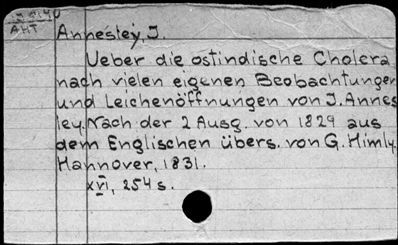 AHT
Annesley, J.
Ueber die ostindische Cholera
nach vielen eigenen Beobachtungen
und Leichenöffnungen von J. Annes
ley. Nach der 2 Ausg. von 1829 aus
dem Englischen übers. von G. Himly.
Hannover, 1831.
xvi, 254 s.